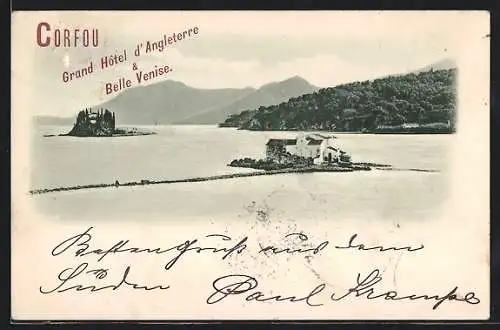 CORFOU
Grand Hôtel d'Angleterre
&
Belle Venise.
Besten Gruß aus dem
Süden Paul Krampe